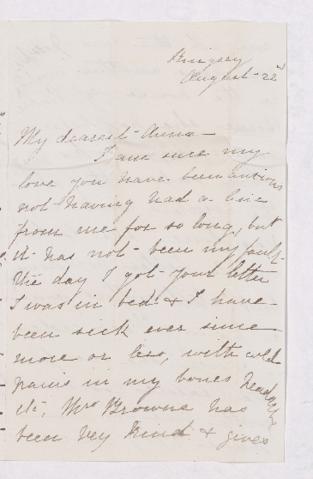 Kingsey
August 22nd
My dearest Anna —
I am sure my
love you have been anxious
not having had a line
from me for so long, but
it has not been my fault.
The day I got your letter
I was in bed & I have
been sick ever since
more or less, with cold
pains in my bones headache
etc, Mrs Browne has
been very kind & gives